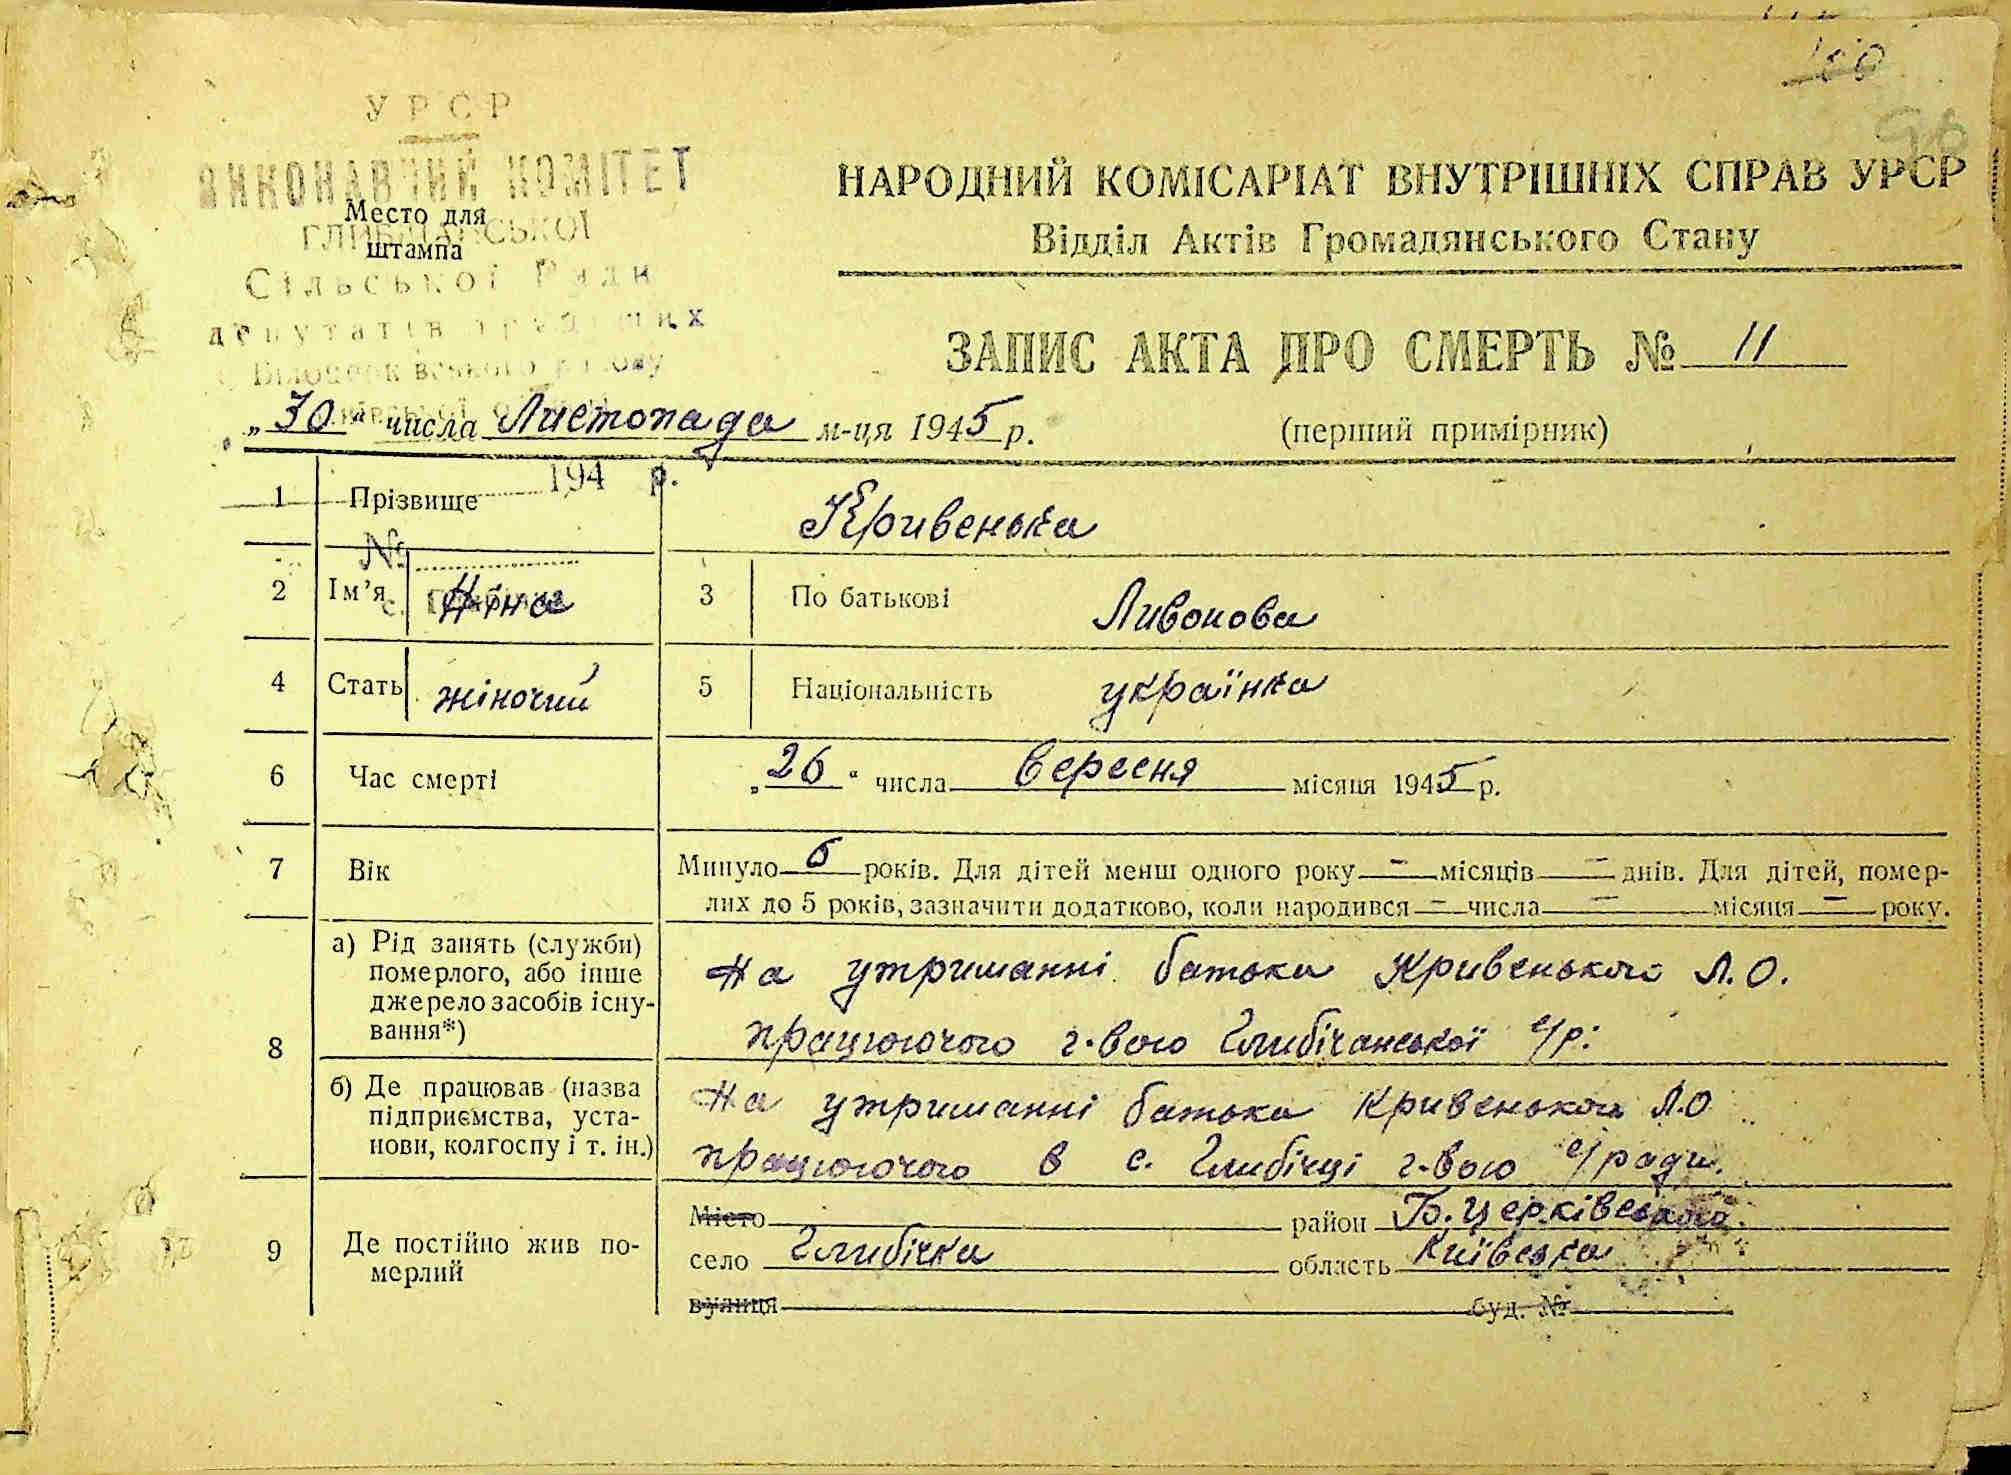 100
96
УРСР
ВИКОНАВЧИЙ КОМІТЕТ
Место для
штампа
Сільської Ради
депутатів трудящих
НАРОДНИЙ КОМІСАРІАТ ВНУТРІШНІХ СПРАВ УРСР
Відділ Актів Громадянського Стану
ЗАПИС АКТА ПРО СМЕРТЬ № 11
„30“ числа Листопада м-ця 1945 р.
(перший примірник)
194 р.
1 Прізвище Кривенька
№
2 Ім’я Ніна 3 По батькові Ливонова
4 Стать жіночий 5 Національність українка
6 Час смерті „26“ числа вересня місяця 1945 р.
7 Вік Минуло 6 років. Для дітей менш одного року — місяців — днів. Для дітей, помер-
лих до 5 років, зазначити додатково, коли народився — числа — місяця — року.
8 а) Рід занять (служби)
померлого, або інше
джерело засобів існу-
вання*)
На утриманні батька Кривенького Л.О.
працюючого г-вою Глибічанської с/р.
б) Де працював (назва
підприємства, уста-
нови, колгоспу і т. ін.)
На утриманні батька Кривенького Л.О
працюючого в с. Глибічці г-вою с/ради.
9 Де постійно жив по-
мерлий
Місто район Б. Церківського.
село Глибічка область Київська
вулиця буд. №